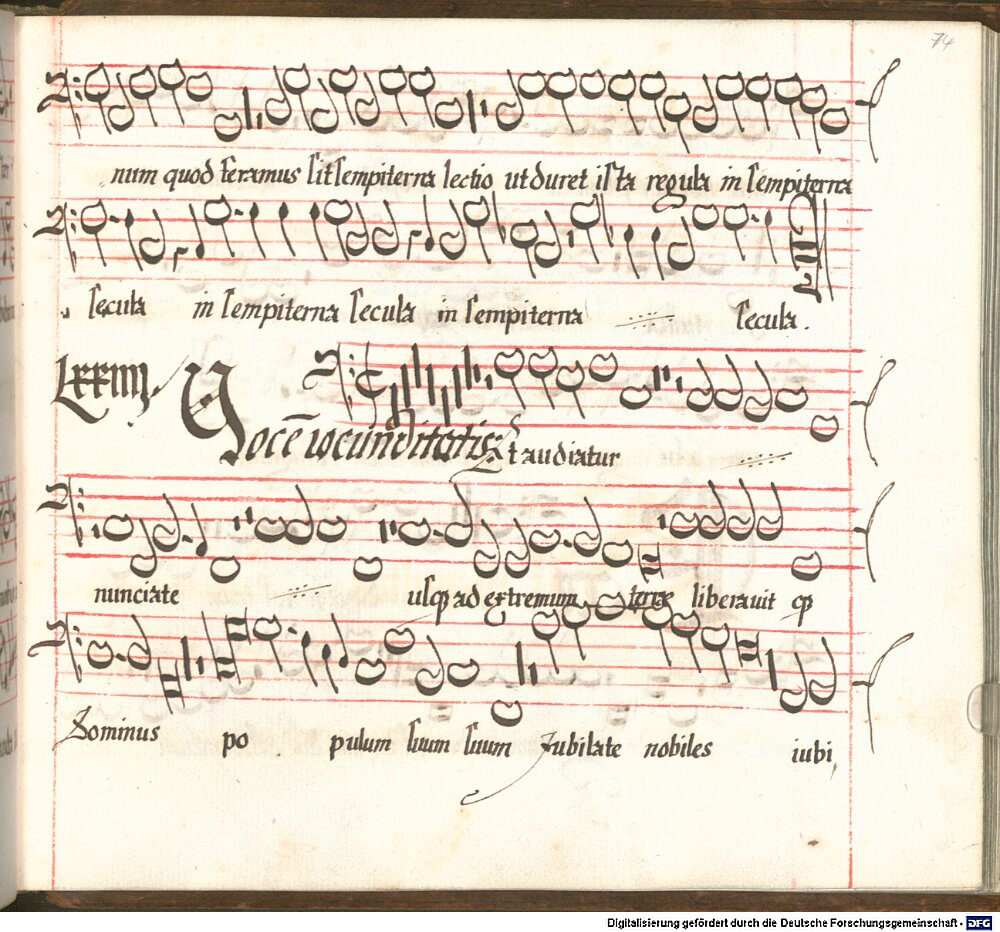 74
num quod feramus sit sempiterna lectio ut duret ista regula in sempiterna
secula in sempiterna secula in sempiterna secula.
LXXIIII.
Vocē iocunditatis Et audiatur
nunciate usq ad extremum terre liberavit qȝ
Dominus po pulum suum suum Jubilate nobiles iubi
Digitalisierung gefördert durch die Deutsche Forschungsgemeinschaft - DFG